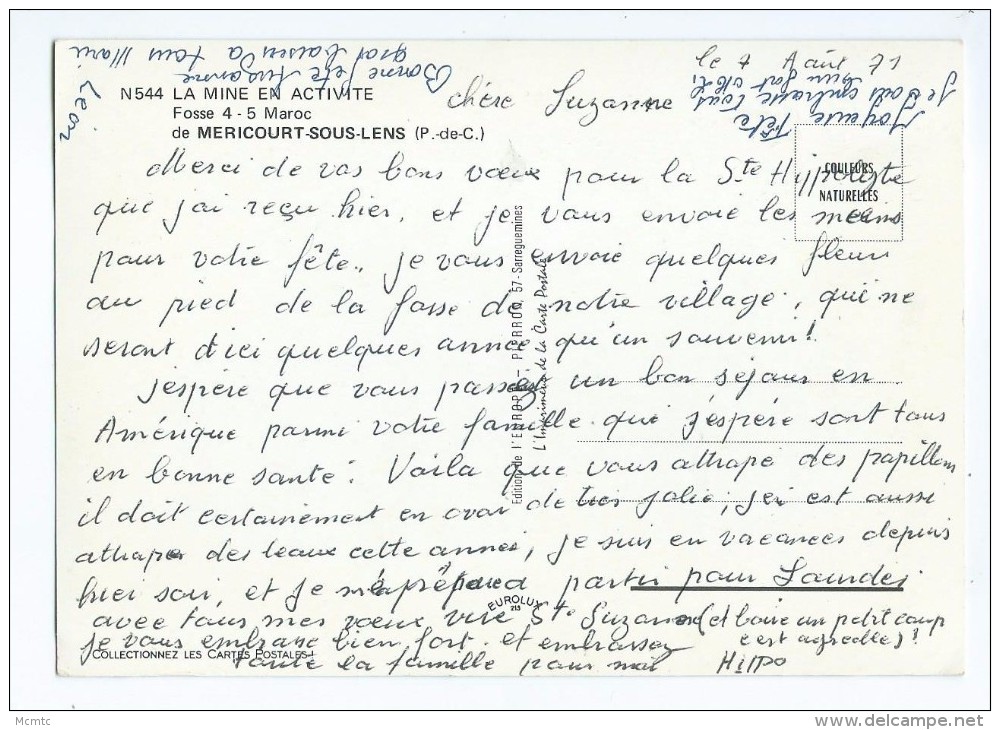 le 7 Août 71
Joyeuse Fête
Bonne fête Suzanne
gros baisers a tous Mari
Léon
N544 LA MINE EN ACTIVITE
Fosse 4 - 5 Maroc
de MERICOURT-SOUS-LENS (P.-de-C.)
chère Suzanne
COULEURS
NATURELLES
Merci de vos bons vœux pour la Ste Hippolyte
que j'ai reçu hier, et je vous envoie les miens
pour votre fête.. je vous envoie quelques fleurs
au pied de la fosse de notre village, qui ne
seront d'ici quelques année qu'un souvenir!
J'espère que vous passez un bon séjour en
Amérique parmi votre famille qui j'espère sont tous
en bonne santé. Voila que vous attrapé des papillons
il doit certainement en avoir de très jolie, j'ai est aussi
attraper des beaux cette année, je suis en vacances depuis
hier soir, et je m'apprête à partir pour Lourdes
avec tous mes vœux, vive Ste Suzanne (et boire un petit coup
c'est agréable)!
je vous embrasse bien fort et embrassez
toute la famille pour moi Hippo
Editions de l'EUROPE - PIERRON, 57 - Sarreguemines
L'Imprimeur de la Carte Postale
EUROLUX
213
COLLECTIONNEZ LES CARTES POSTALES !
Mcmtc
delcampe.net